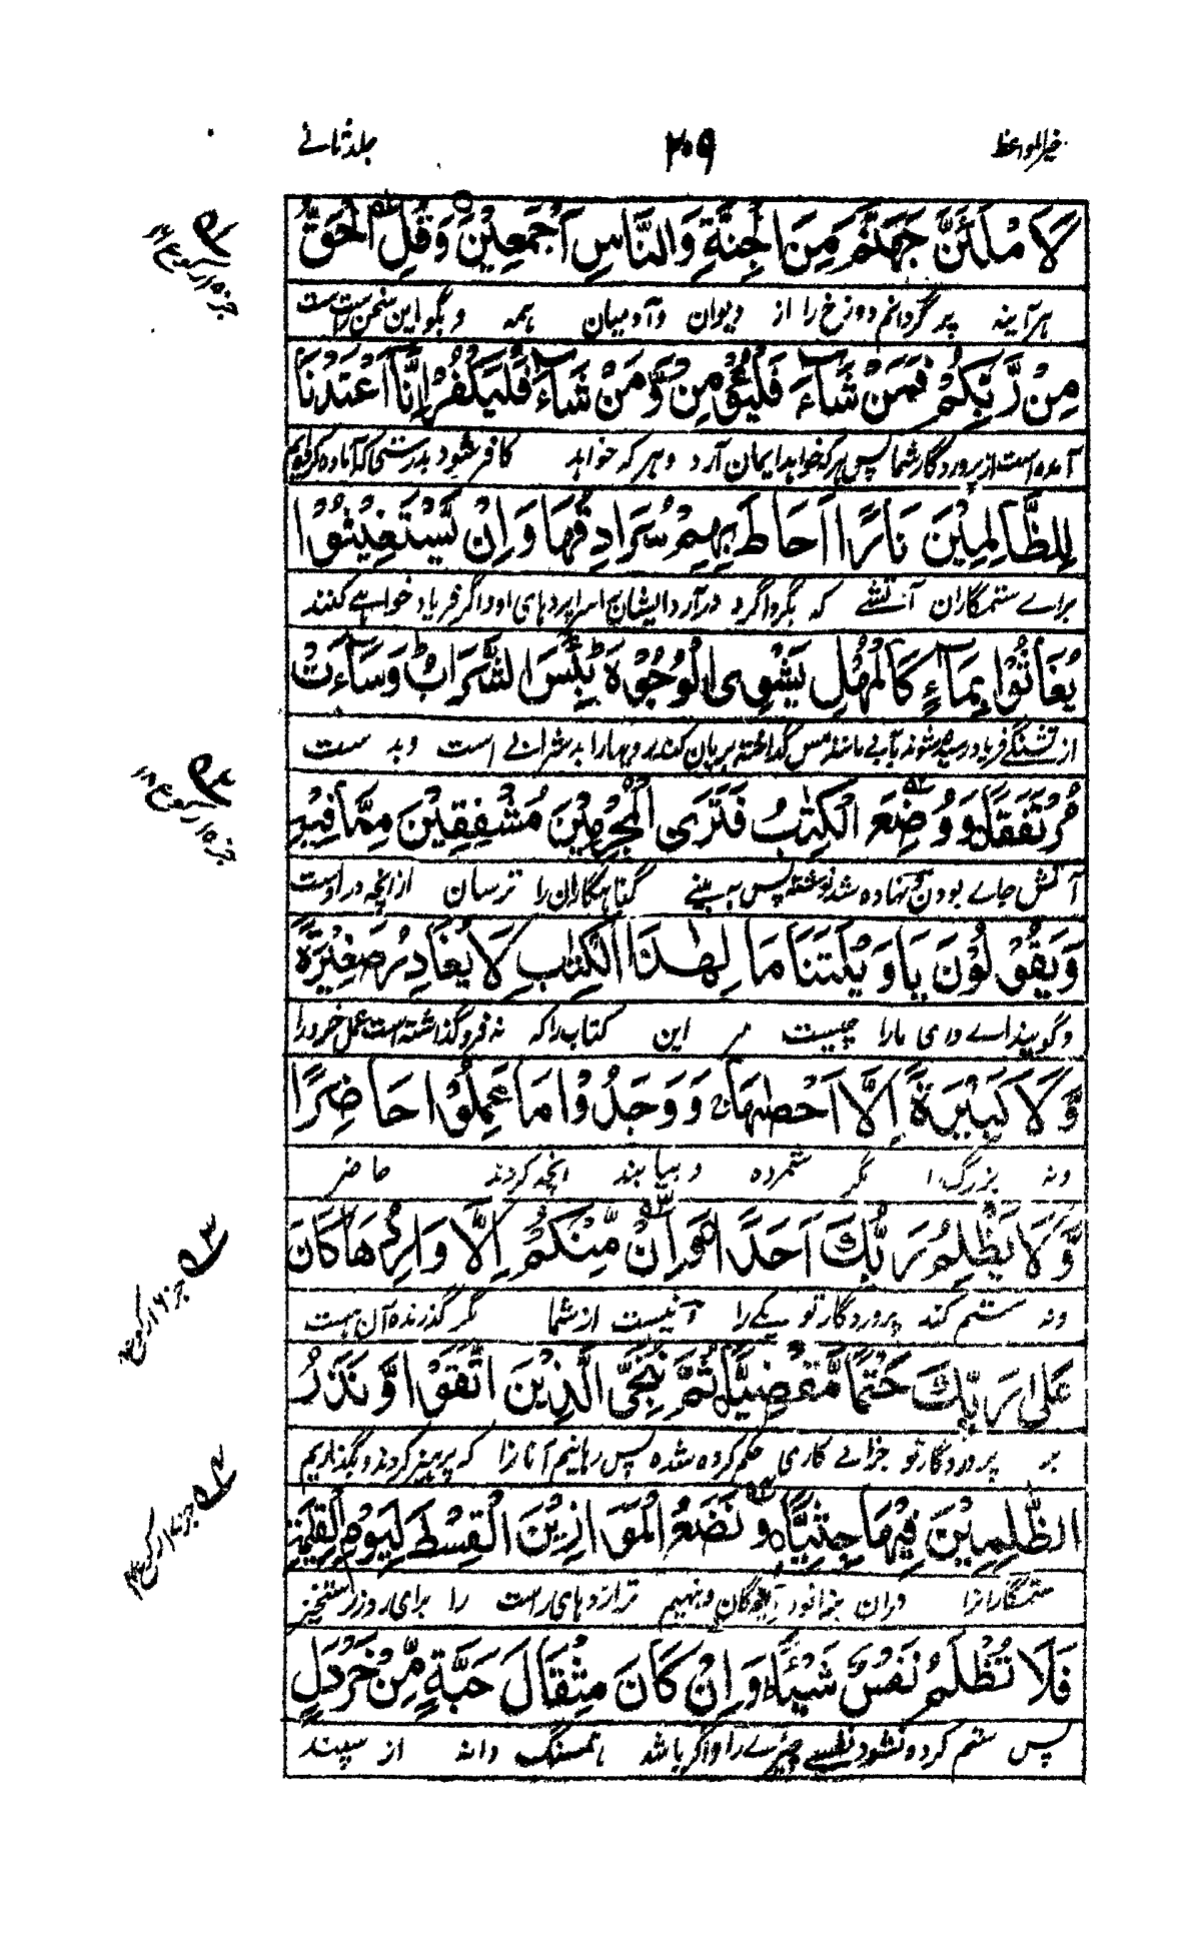 خیر المواعظ ۲۰۹ جلد ثانے
لَاَمْلَئَنَّ جَهَنَّمَ مِنَ الْجِنَّةِ وَالنَّاسِ اَجْمَعِيْنَ وَقُلِ الْحَقُّ
هر آینه پر گردانم دوزخ را از دیوان و آدمیان همه و بگو این سخن راست است
مِنْ رَّبِّكُمْ فَمَنْ شَآءَ فَلْيُؤْمِنْ وَّمَنْ شَآءَ فَلْيَكْفُرْ اِنَّا اَعْتَدْنَا
آمده است از پروردگار شما پس هر که خواهد ایمان آرد و هر که خواهد کافر شود بدرستی که آماده کرده‌ایم
لِلظَّالِمِيْنَ نَارًا اَحَاطَ بِهِمْ سُرَادِقُهَا وَاِنْ يَّسْتَغِيْثُوْا
براے ستمگاران آتشے که بگرداگرد در آرد ایشان را سراپردهای او و اگر فریاد خواهے کنند
يُغَاثُوْا بِمَآءٍ كَالْمُهْلِ يَشْوِى الْوُجُوْهَ بِئْسَ الشَّرَابُ وَسَآءَتْ
از تشنگے فریاد رسیده شوند بآبے مانند مس گداخته بریان کند رویها را بد شرابے است و بد ست
مُرْتَفَقًا وَوُضِعَ الْكِتٰبُ فَتَرَى الْمُجْرِمِيْنَ مُشْفِقِيْنَ مِمَّا فِيْهِ
آتش جاے بودن و نهاده شد نوشته پس به بینے گناهگاران را ترسان از انچه در اوست
وَيَقُوْلُوْنَ يَا وَيْلَتَنَا مَا لِهٰذَا الْكِتٰبِ لَا يُغَادِرُ صَغِيْرَةً
و گویند اے وای ما را چیست مر این کتاب را که نه فرو گذاشته است عمل خرد را
وَّلَا كَبِيْرَةً اِلَّا اَحْصٰهَا وَوَجَدُوْا مَا عَمِلُوْا حَاضِرًا
ونه بزرگ را مگر شمرده و بیابند انچه کردند حاضر
وَّلَا يَظْلِمُ رَبُّكَ اَحَدًا وَاِنْ مِّنْكُمْ اِلَّا وَارِدُهَا كَانَ
ونه ستم کند پروردگار تو یکے را و نیست از شما مگر گذرنده آن هست
عَلٰى رَبِّكَ حَتْمًا مَّقْضِيًّا ثُمَّ نُنَجِّى الَّذِيْنَ اتَّقَوْا وَّنَذَرُ
بر پروردگار تو جزائے کاری حکم کرده شده پس رهانیم آنانرا که پرهیز کردند و بگذاریم
الظّٰلِمِيْنَ فِيْهَا جِثِيًّا وَنَضَعُ الْمَوَازِيْنَ الْقِسْطَ لِيَوْمِ الْقِيٰمَةِ
ستمگارانرا دران بزانو در و بنهیم ترازوهای راست را برای روز رستخیز
فَلَا تُظْلَمُ نَفْسٌ شَيْئًا وَاِنْ كَانَ مِثْقَالَ حَبَّةٍ مِّنْ خَرْدَلٍ
پس ستم کرده نشود نفسے چیزے را و اگر باشد همسنگ دانه از سپند